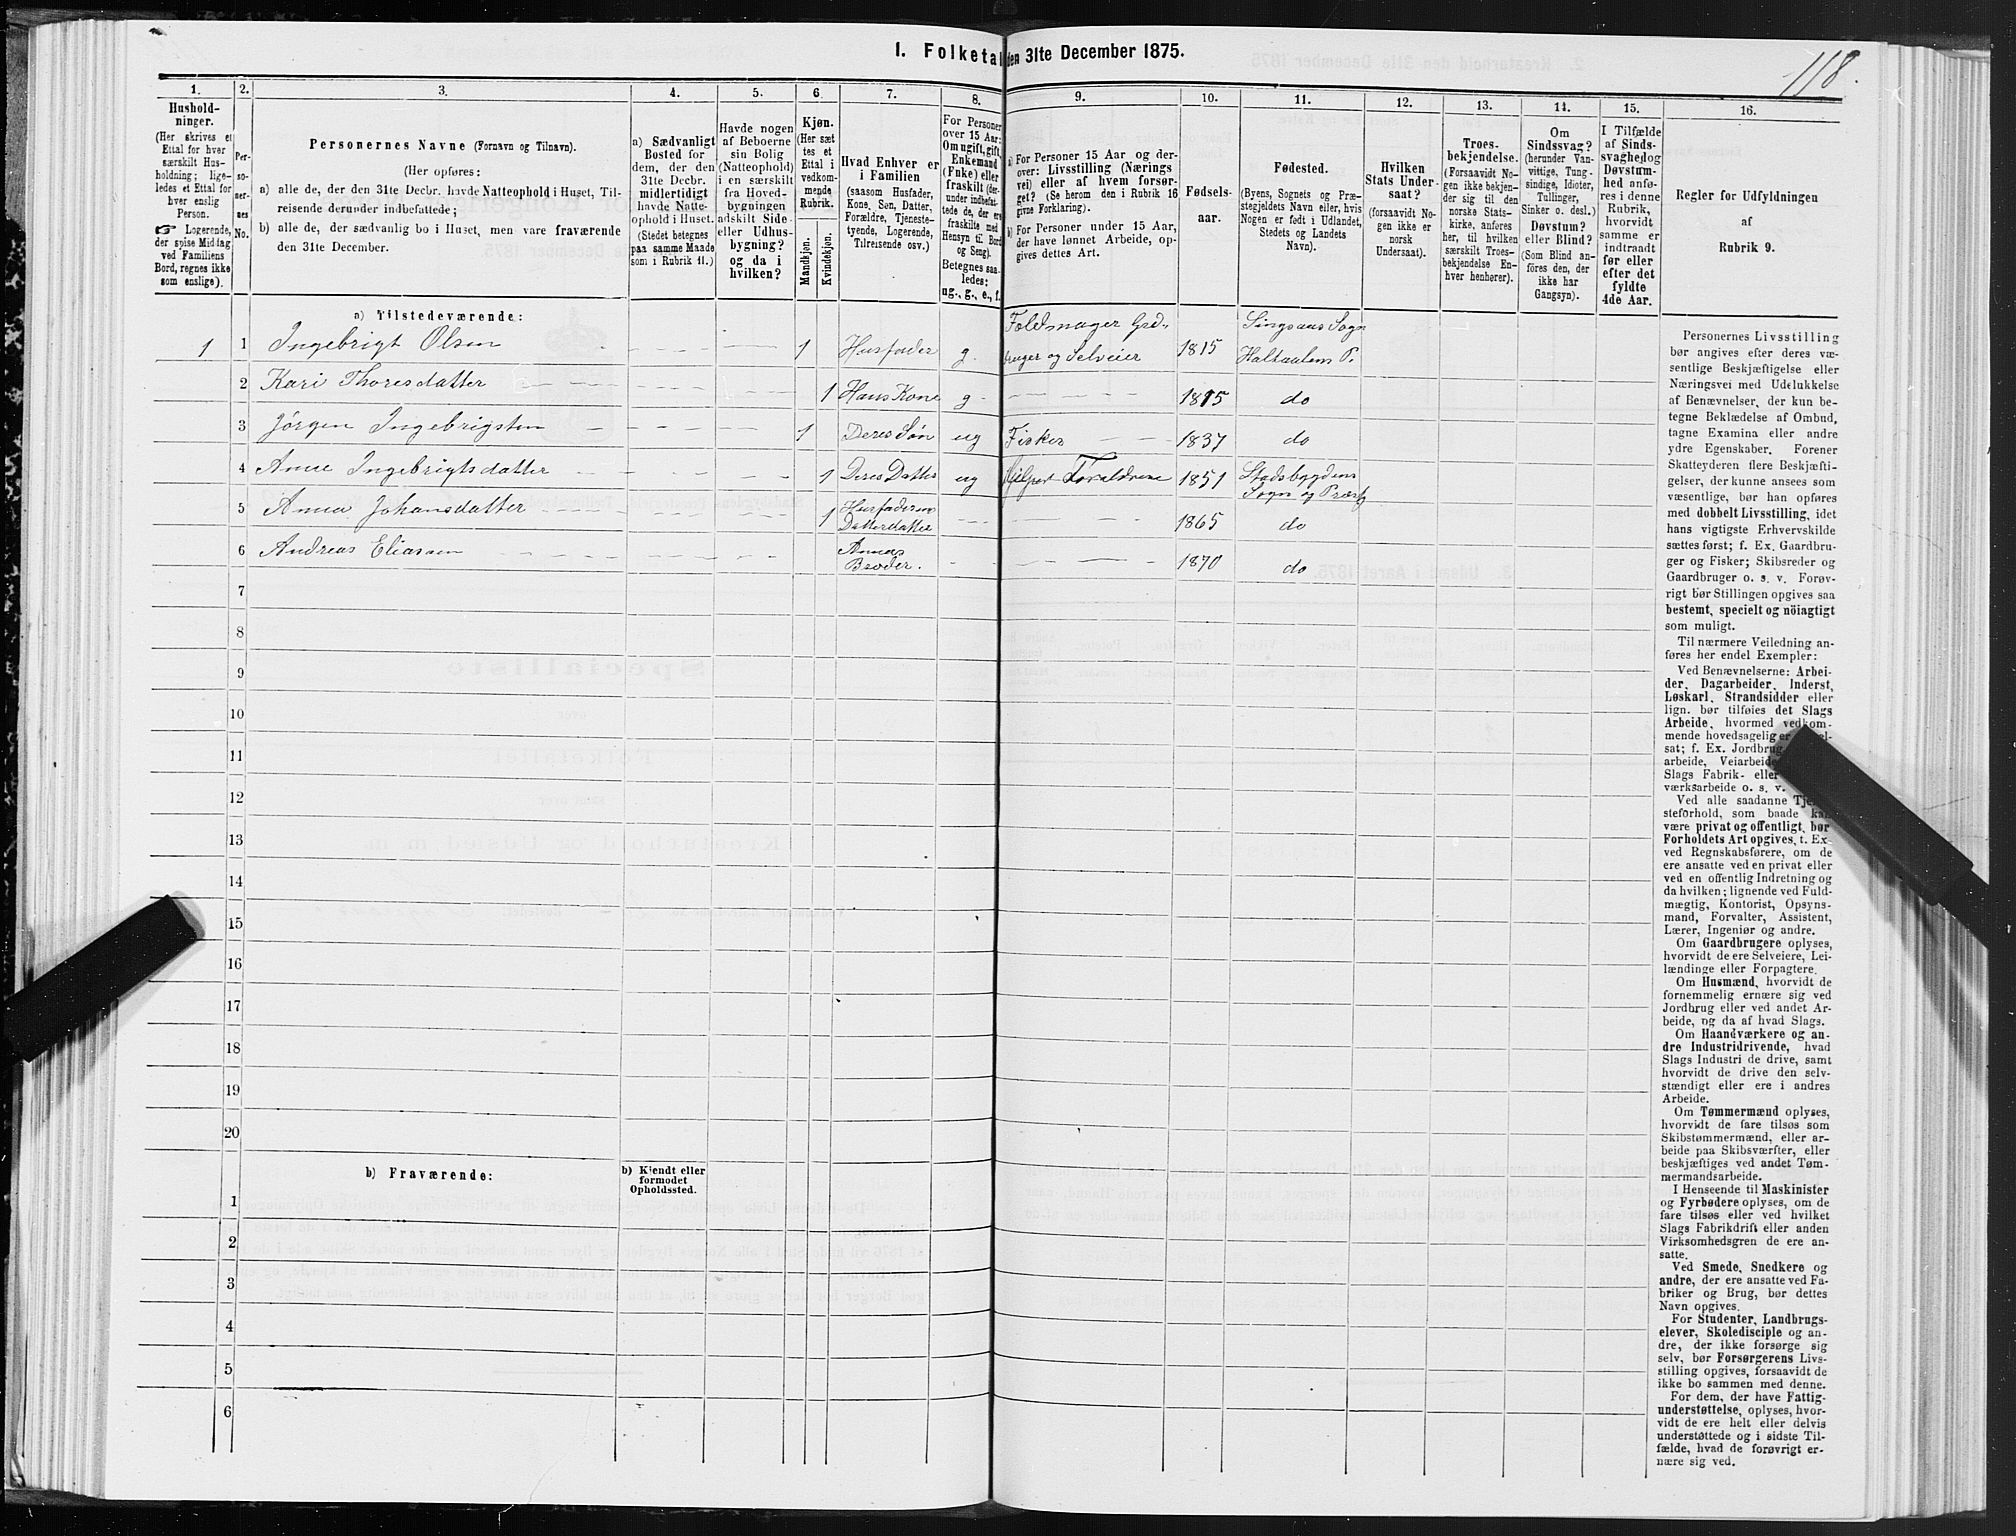 I. Folketal den 31te December 1875.
118.
1.
Hushold-
ninger.
(Her skrives et
Ettal for hver
særskilt Hus-
holdning; lige-
ledes et Ettal for
hver enslig
Person.
☞ Logerende,
der spise Middag
ved Familiens
Bord, regnes ikke
som enslige).
2.
Per-
so-
ner-
nes
No.
3.
Personernes Navne (Fornavn og Tilnavn).
(Her opføres:
a) alle de, der den 31te Decbr. havde Natteophold i Huset, Til-
reisende derunder indbefattede;
b) alle de, der sædvanlig bo i Huset, men vare fraværende
den 31te December.
4.
a) Sædvanligt
Bosted for
dem, der den
31te Decbr.
midlertidigt
havde Natte-
ophold i Huset.
(Stedet betegnes
paa samme Maade
som i Rubrik 11.)
5.
Havde nogen
af Beboerne
sin Bolig
(Natteophold)
i en særskilt
fra Hoved-
bygningen
adskilt Side-
eller Udhus-
bygning?
og da i
hvilken?
6.
Kjøn.
(Her sæt-
tes et
Ettal i
vedkom-
mende
Rubrik.
Mandkjøn.
Kvindekjøn.
7.
Hvad Enhver er
i Familien
(saasom Husfader,
Kone, Søn, Datter,
Forældre, Tjeneste-
tyende, Logerende,
Tilreisende osv.)
8.
For Personer
over 15 Aar:
Om ugift, gift,
Enkemand
(Enke) eller
fraskilt (der-
under indbefat-
tede de, der ere
fraskilte med
Hensyn til Bord
og Seng).
Betegnes saa-
ledes:
ug., g., e., f.
9.
a) For Personer 15 Aar og der-
over: Livsstilling (Nærings-
vei) eller af hvem forsør-
get? (Se herom den i Rubrik 16
givne Forklaring).
b) For Personer under 15 Aar,
der have lønnet Arbeide, op-
gives dettes Art.
10.
Fødsels-
aar.
11.
Fødested.
(Byens, Sognets og Præ-
stegjeldets Navn eller, hvis
Nogen er født i Udlandet,
Stedets og Landets
Navn).
12.
Hvilken
Stats Under-
saat?
(forsaavidt No-
gen ikke er
norsk
Undersaat).
13.
Troes-
bekjendelse.
(Forsaavidt No-
gen ikke bekjen-
der sig til den
norske Stats-
kirke, anføres
her, til hvilken
særskilt Troes-
bekjendelse En-
hver henhører).
14.
Om
Sindssvag?
(herunder Van-
vittige, Tung-
sindige, Idioter,
Tullinger,
Sinker o. desl.)
Døvstum?
eller Blind?
(Som Blind an-
føres den, der
ikke har
Gangsyn).
15.
I Tilfælde
af Sinds-
svaghed og
Døvstum-
hed anfø-
res i denne
Rubrik,
hvorvidt
samme er
indtraadt
før eller
efter det
fyldte
4de Aar.
16.
Regler for Udfyldningen
af
Rubrik 9.
a) Tilstedeværende:
1 1 Ingebrigt Olsen 1 Husfader g. Foldsmager Grd- bruger og Selveier 1815 Singsaas Sogn Haltaalens P.
2 Kari Thoresdatter 1 Hans Kone g. 1815 do
3 Jørgen Ingebrigsten 1 Deres Søn ug Fisker 1837 do
4 Anne Ingebrigtsdatter 1 Deres Datter ug Hjelper Forældrene 1851 Stadsbygdens Sogn og Præstg
5 Anna Johansdatter 1 Husfaderens Datterdatter 1865 do
6 Andreas Eliassen Annas Broder. 1870 do
7
8
9
10
11
12
13
14
15
16
17
18
19
20
b) Fraværende:
b) Kjendt eller
formodet
Opholdssted.
1
2
3
4
5
6
Personernes Livsstilling
bør angives efter deres væ-
sentlige Beskjæftigelse eller
Næringsvei med Udelukkelse
af Benævnelser, der kun be-
tegne Beklædelse af Ombud,
tagne Examina eller andre
ydre Egenskaber. Forener
Skatteyderen flere Beskjæfti-
gelser, der kunne ansees som
væsentlige, bør han opføres
med dobbelt Livsstilling, idet
hans vigtigste Erhvervskilde
sættes først; f. Ex. Gaardbru-
ger og Fisker; Skibsreder og
Gaardbruger o. s. v. Forøv-
rigt bør Stillingen opgives saa
bestemt, specielt og nöiagtigt
som muligt.
Til nærmere Veiledning an-
føres her endel Exempler:
Ved Benævnelserne: Arbei-
der, Dagarbeider, Inderst,
Løskarl, Strandsidder eller
lign. bør tilføies det Slags
Arbeide, hvormed vedkom-
mende hovedsagelig er
sat; f. Ex. Jordbrug
arbeide, Veiarbeide
Slags Fabrik- eller
værksarbeide o. s. v.
Ved alle saadanne Tje-
steforhold, som baade kan
være privat og offentligt, bør
Forholdets Art opgives, t. Ex.
ved Regnskabsførere, om de
ere ansatte ved en privat eller
ved en offentlig Indretning og
da hvilken; lignende ved Fuld-
mægtig, Kontorist, Opsyns-
mand, Forvalter, Assistent,
Lærer, Ingeniør og andre.
Om Gaardbrugere oplyses,
hvorvidt de ere Selveiere, Lei-
lændinge eller Forpagtere.
Om Husmænd, hvorvidt de
fornemmelig ernære sig ved
Jordbrug eller ved andet Ar-
beide, og da af hvad Slags.
Om Haandværkere og an-
dre Industridrivende, hvad
Slags Industri de drive, samt
hvorvidt de drive den selv-
stændigt eller ere i andres
Arbeide.
Om Tømmermænd oplyses,
hvorvidt de fare tilsøs som
Skibstømmermænd, eller ar-
beide paa Skibsværfter, eller
beskjæftiges ved andet Tøm-
mermandsarbeide.
I Henseende til Maskinister
og Fyrbødere oplyses, om de
fare tilsøs eller ved hvilket
Slags Fabrikdrift eller anden
Virksomhedsgren de ere an-
satte.
Ved Smede, Snedkere og
andre, der ere ansatte ved Fa-
briker og Brug, bør dettes
Navn opgives.
For Studenter, Landbrugs-
elever, Skoledisciple og an-
dre, der ikke forsørge sig
selv, bør Forsørgerens Livs-
stilling opgives, forsaavidt de
ikke bo sammen med denne.
For dem, der have Fattig-
understøttelse, oplyses, hvor-
vidt de ere helt eller delvis
understøttede og i sidste Til-
fælde, hvad de forøvrigt er-
nære sig ved.